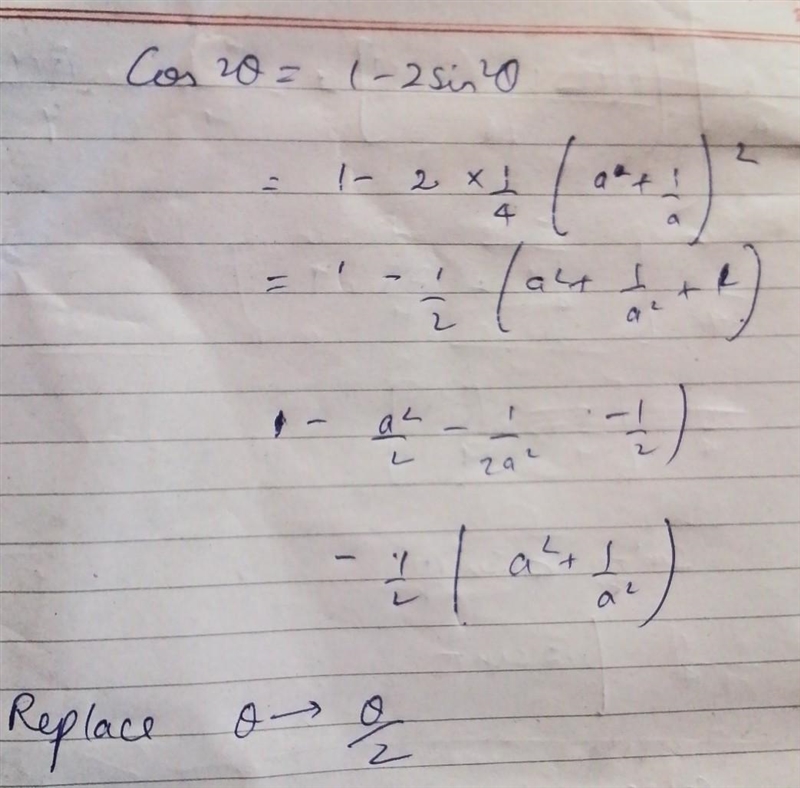 Cos 2θ = 1 - 2sin²θ
= 1 - 2 × 1/4 (a + 1/a)²
= 1 - 1/2 (a² + 1/a² + 2)
1 - a²/2 - 1/2a² - 1/2)
- 1/2 (a² + 1/a²)
Replace θ → θ/2